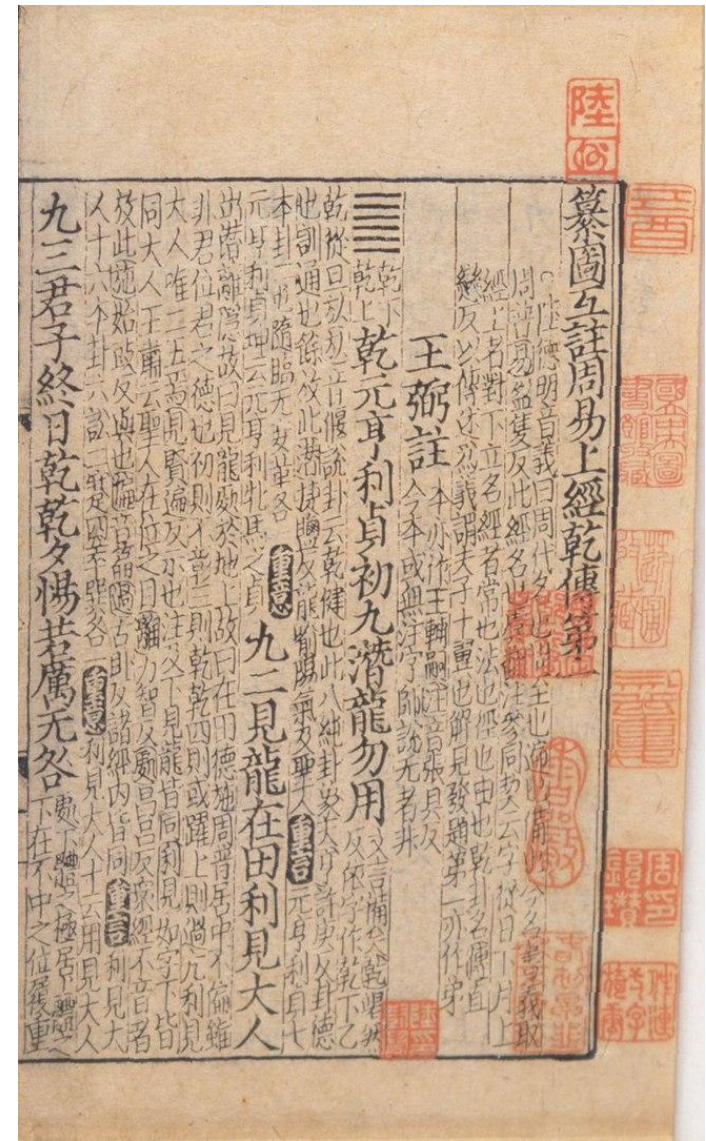 纂圖互註周易上經乾傳第一
○陸德明音義曰周代名也周至也徧也備也今名書義取
周普易盈隻反此經名也虞翻注參同契云字從日下月上
經上者對下立名經者常也法也經也由也乾卦名傳直
戀反以傳述爲義謂夫子十翼也解見發題第一亦作弟
王弼註 本亦作王輔嗣注音張具反
今本或無注字師說无者非
乾下
乾上 乾元亨利貞初九潛龍勿用 文言備矣乾竭然
反依字作乾下乙
乾從旦㫃音偃說卦云乾健也此八純卦象天亨許庚反卦德
也訓通也餘放此潛捷鹽反龍喻陽氣及聖人 重言 元亨利貞七
本卦一屯隨臨无妄革各
元亨利貞坤云元亨利牝馬之貞 重意 九二見龍在田利見大人
出潛離隱故曰見龍處於地上故曰在田德施周普居中不偏雖
非君位君之德也初則不彰三則乾乾四則或躍上則過亢利見
大人唯二五焉見賢遍反示也注及下見龍皆同利見如字下皆
同大人王肅云聖人在位之目離力智反處昌呂反衆經不音者
放此施始豉反與也偏音篇過古卧反諸經內皆同 重言 利見大
人十六本卦六訟二蹇四萃巽各 重意 利見大人十云用見大人
九三君子終日乾乾夕惕若厲无咎 處下體之極居上體之
下在不中之位履重
陸沆
周印錫瓚